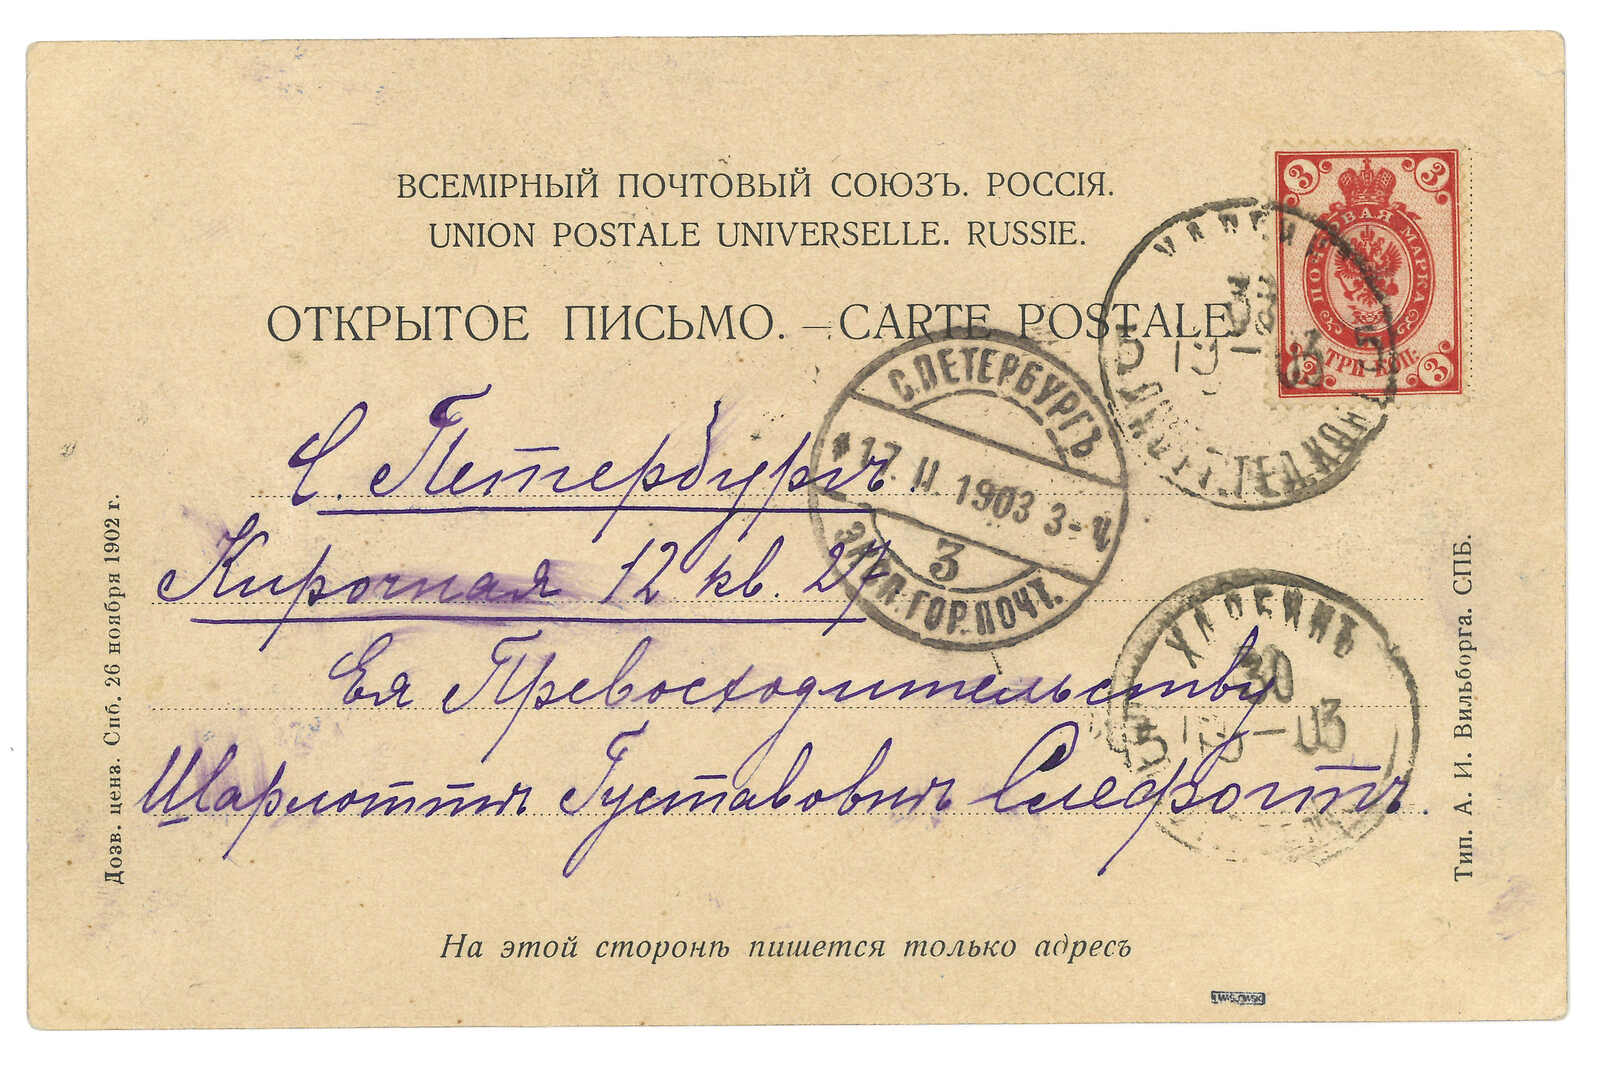 ВСЕМІРНЫЙ ПОЧТОВЫЙ СОЮЗЪ. РОССІЯ.
UNION POSTALE UNIVERSELLE. RUSSIE.
ОТКРЫТОЕ ПИСЬМО. — CARTE POSTALE
3 3
ПОЧТОВАЯ МАРКА
ТРИ КОП.
3 3
5 19 — 03 5
С. ПЕТЕРБУРГЪ
17. II. 1903 3- Ч
3
ГОР. ПОЧТ.
С. Петербургъ.
Кирочная 12 кв. 27
Ея Превосходительству
Шарлоттѣ Густавовнѣ
ХАРБИНЪ
30
5 19 — 03
Дозв. ценз. Спб. 26 ноября 1902 г.
Тип. А. И. Вильборга. СПБ.
На этой сторонѣ пишется только адресъ